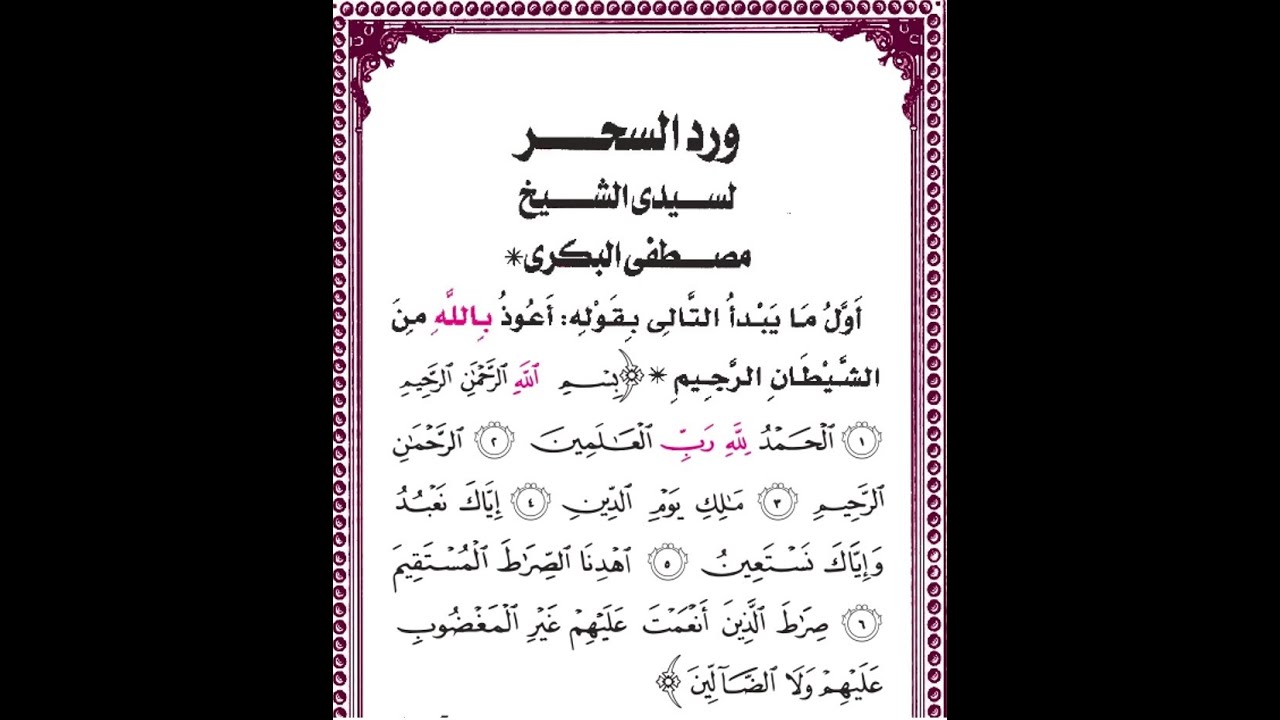 ورد السحر
لسيدى الشيخ
مصطفى البكرى*
أَوَّلُ مَا يَبْدأُ التَّالِى بِقَوْلِهِ: أَعُوذُ بِاللَّهِ مِنَ
الشَّيْطَانِ الرَّجِيمِ * ﴿بِسْمِ ٱللَّهِ ٱلرَّحْمَٰنِ ٱلرَّحِيمِ
١ ٱلْحَمْدُ لِلَّهِ رَبِّ ٱلْعَٰلَمِينَ ٢ ٱلرَّحْمَٰنِ
ٱلرَّحِيمِ ٣ مَٰلِكِ يَوْمِ ٱلدِّينِ ٤ إِيَّاكَ نَعْبُدُ
وَإِيَّاكَ نَسْتَعِينُ ٥ ٱهْدِنَا ٱلصِّرَٰطَ ٱلْمُسْتَقِيمَ
٦ صِرَٰطَ ٱلَّذِينَ أَنْعَمْتَ عَلَيْهِمْ غَيْرِ ٱلْمَغْضُوبِ
عَلَيْهِمْ وَلَا ٱلضَّآلِّينَ﴾